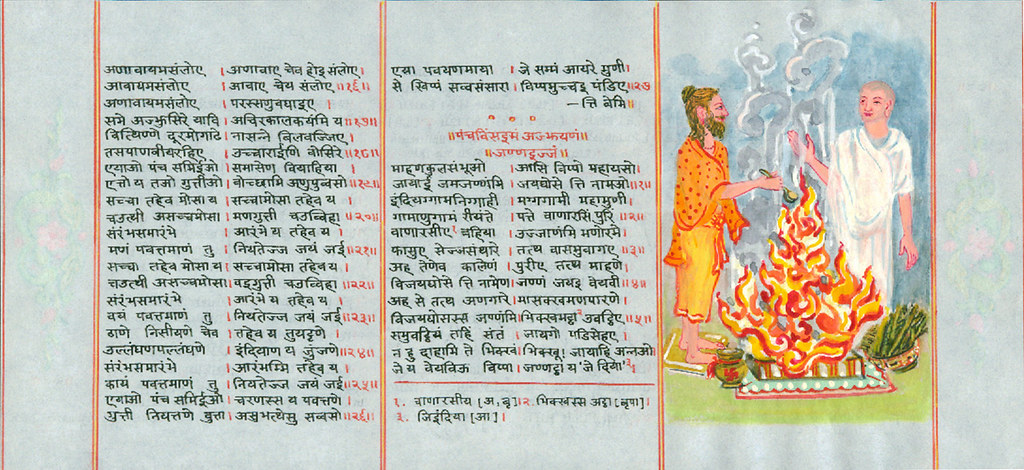 अणावायमसंलोए । अणावाए चेव होइ संलोए ।
आवायमसंलोए । आवाए चेय संलोए ॥१६॥
अणावायमसंलोए । परस्सणुवघाइए ।
समे अज्झुसिरे यावि । अचिरकालकयंमि य ॥१७॥
वित्थिण्णे दूरमोगाढे । नासन्ने बिलवज्जिए ।
तसपाणबीयरहिए । उच्चाराईणि वोसिरे ॥१८॥
एयाओ पंच समिईओ । समासेण वियाहिया ।
एत्तो य तओ गुत्तीओ । वोच्छामि अणुपुव्वसो ॥१९॥
सच्चा तहेव मोसा य । सच्चामोसा तहेव य ।
चउत्थी असच्चमोसा । मणगुत्ती चउव्विहा ॥२०॥
संरंभसमारंभे । आरंभे य तहेव य ।
मणं पवत्तमाणं तु । नियतेज्ज जयं जई ॥२१॥
सच्चा तहेव मोसा य । सच्चामोसा तहेव य ।
चउत्थी असच्चमोसा । वइगुत्ती चउव्विहा ॥२२॥
संरंभसमारंभे । आरंभे य तहेव य ।
वयं पवत्तमाणं तु । नियतेज्ज जयं जई ॥२३॥
ठाणे निसीयणे चेव । तहेव य तुयट्टणे ।
उल्लंघणपल्लंघणे । इंदियाण य जुंजणे ॥२४॥
संरंभसमारंभे । आरंभम्मि तहेव य ।
कायं पवत्तमाणं तु । नियतेज्ज जयं जई ॥२५॥
एयाओ पंच समिईओ । चरणस्स य पवत्तणे ।
गुत्ती नियत्तणे वुत्ता । असुभत्थेसु सव्वसो ॥२६॥
एया पवयणमाया । जे सम्मं आयरे मुणी ।
से खिप्पं सव्वसंसारा । विप्पमुच्चइ पंडिए ॥२७
—त्ति बेमि ॥
॥पंचविंसइमं अज्झयणं॥
॥जण्णइज्जं॥
माहणकुलसंभूओ । आसि विप्पो महायसो ।
जायाई जमजण्णंमि । जयघोसे त्ति नामओ ॥१॥
इंदियग्गामनिग्गाही । मग्गगामी महामुणी ।
गामाणुगामं रीयंते । पत्ते वाणारसिं पुरिं ॥२॥
वाणारसीए१ बहिया । उज्जाणंमि मणोरमे ।
फासुए सेज्जसंथारे । तत्थ वासमुवागए ॥३॥
अह तेणेव कालेणं । पुरीए तत्थ माहणे ।
विजयघोसे त्ति नामेण । जण्णं जयइ वेयवी ॥४॥
अह से तत्थ अणगारे । मासक्खमणपारणे ।
विजयघोसस्स जण्णंमि । भिक्खमट्ठा२ उवट्ठिए ॥५॥
समुवट्ठियं तहिं संतं । जायगो पडिसेहए ।
न हु दाहामि ते भिक्खं । भिक्खू! जायाहि अन्नओ ॥
जे य वेयविऊ विप्पा । जण्णट्ठा य जे दिया३ ।
१. वाणारसीय [अ, बृ] । २. भिक्खस्स अट्ठा [बृपा] ।
३. जिइंदिया [आ] ।